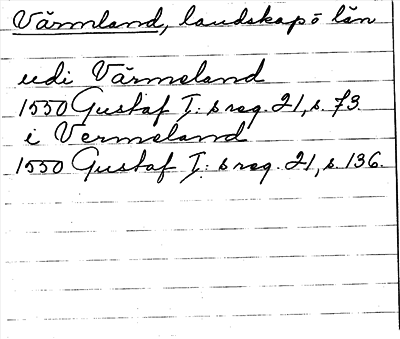 Värmland, landskap o län
udi Värmeland
1550 Gustaf I:s reg. 21, s. 73.
i Vermeland
1550 Gustaf I:s reg. 21, s. 136.